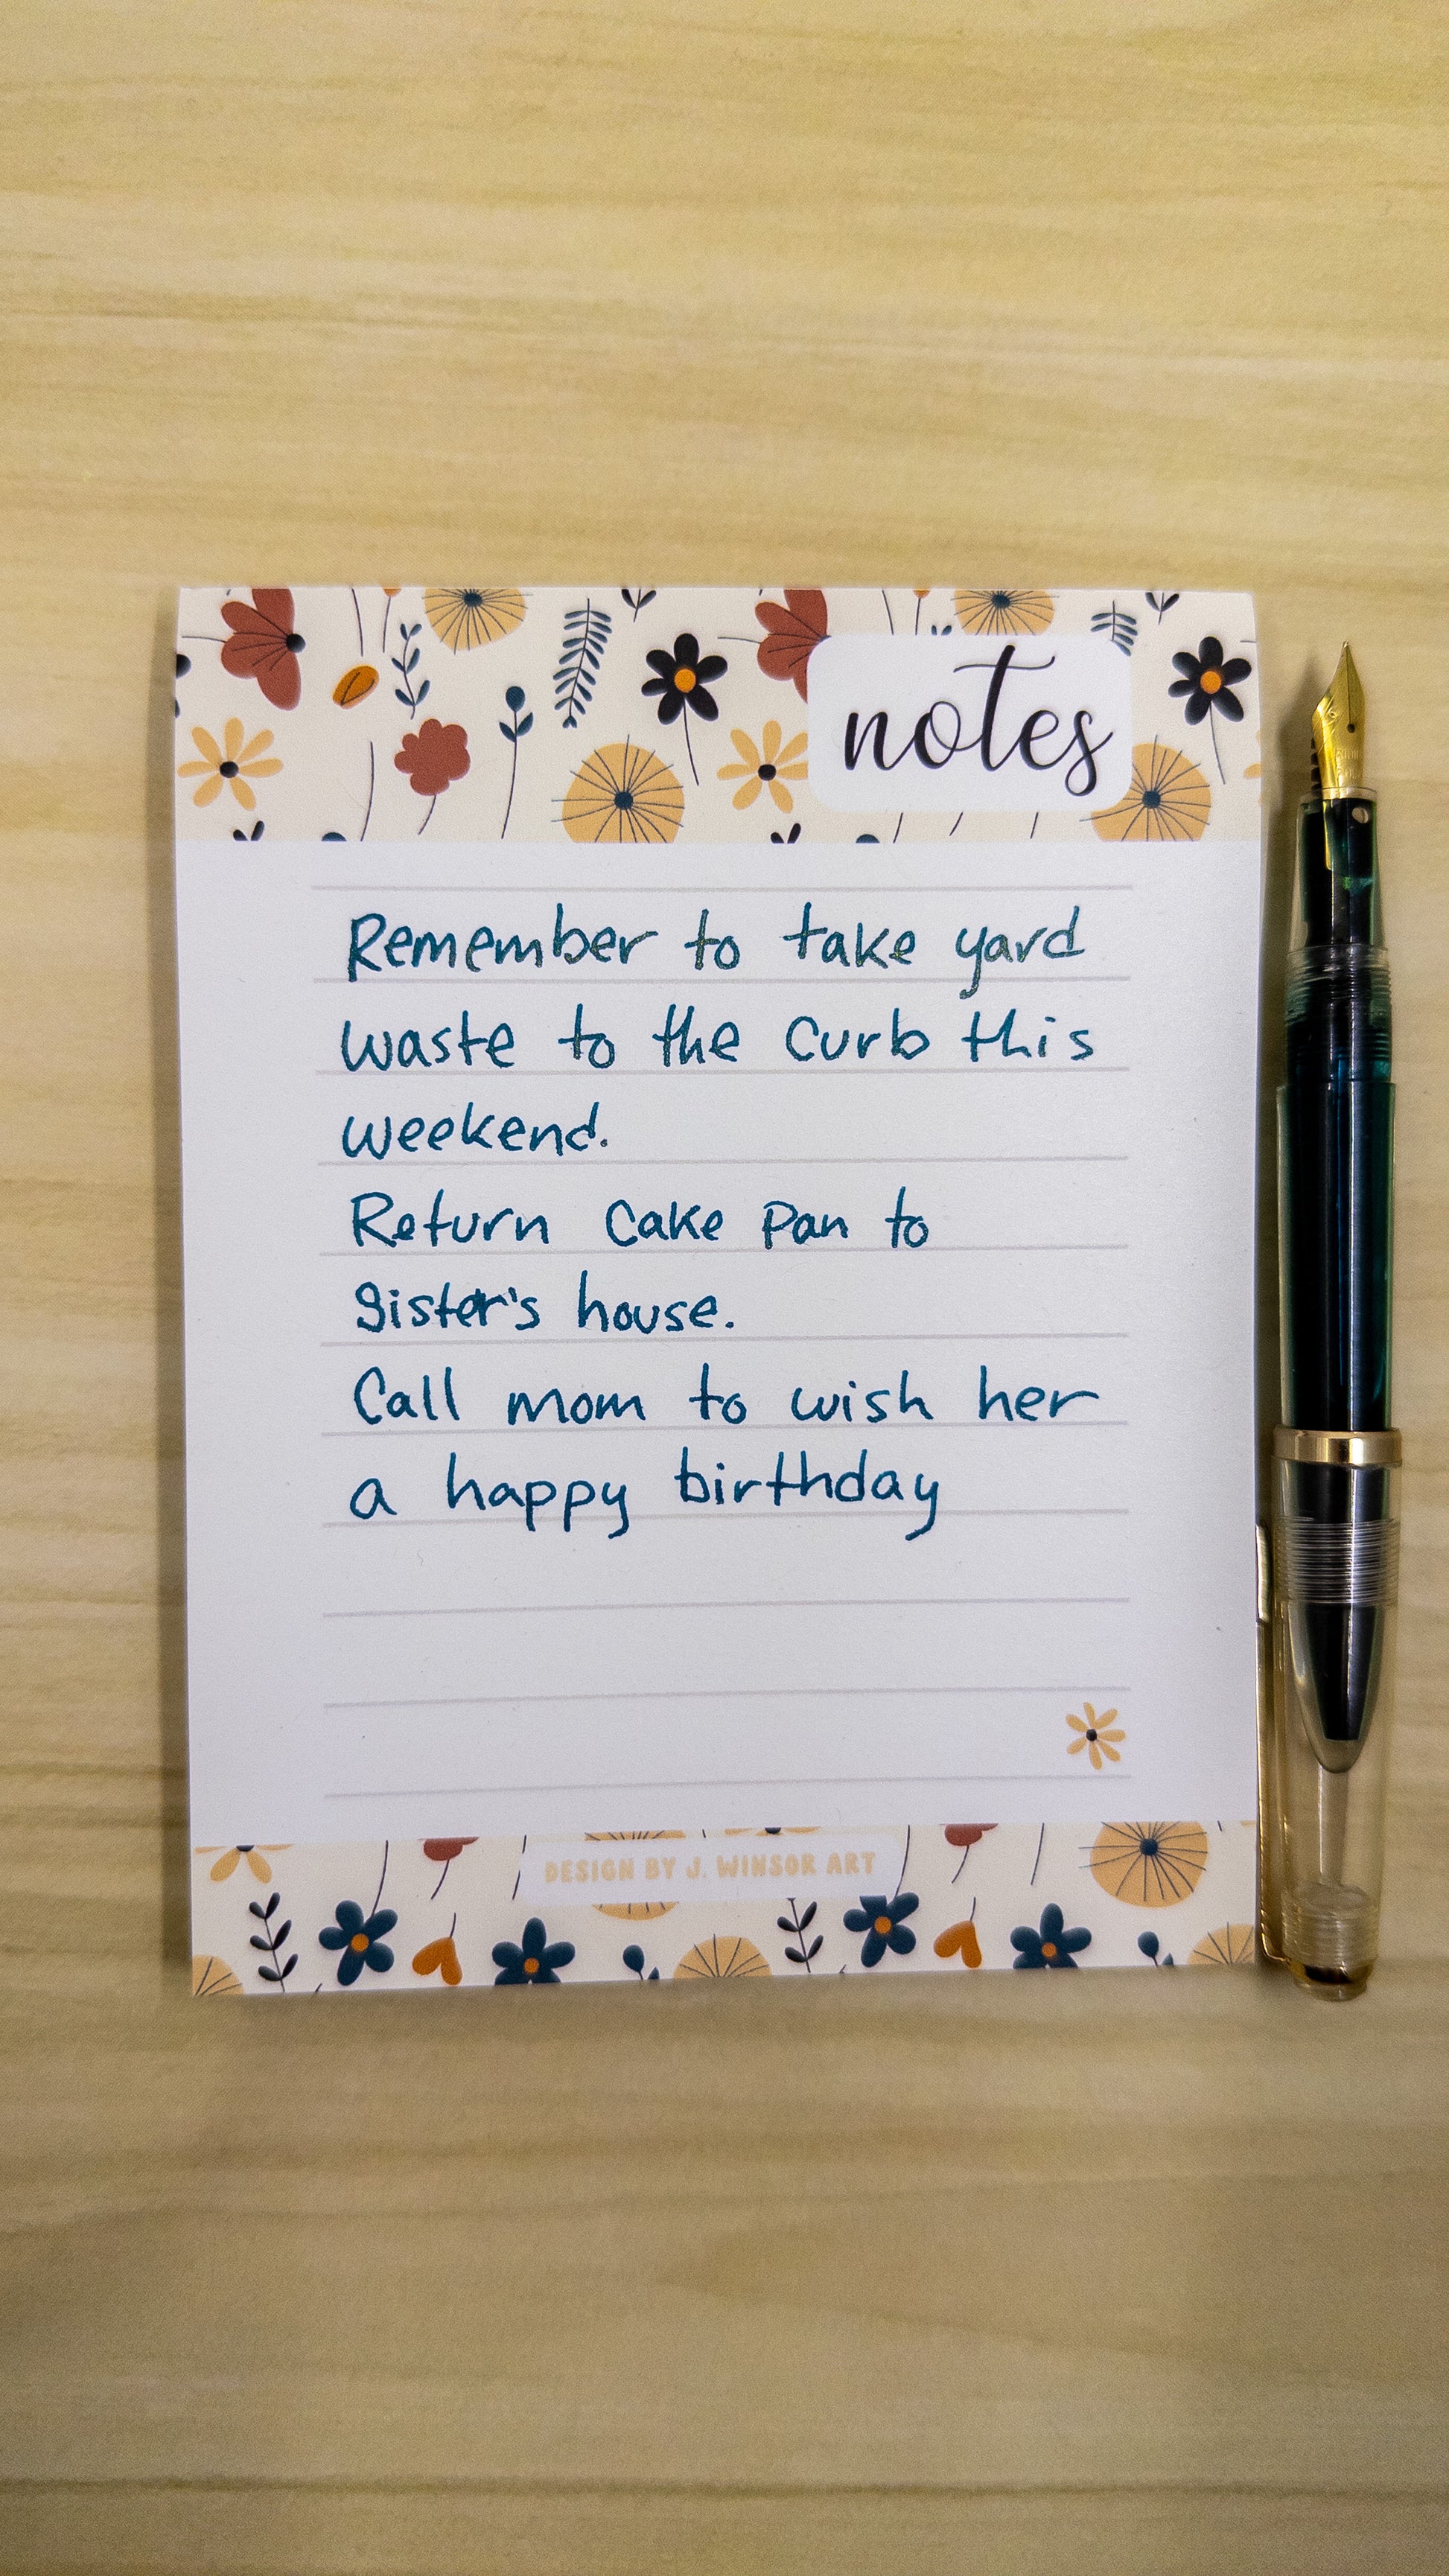 notes
Remember to take yard
waste to the curb this
weekend.
Return cake pan to
sister's house.
Call mom to wish her
a happy birthday
DESIGN BY J. WINSOR ART